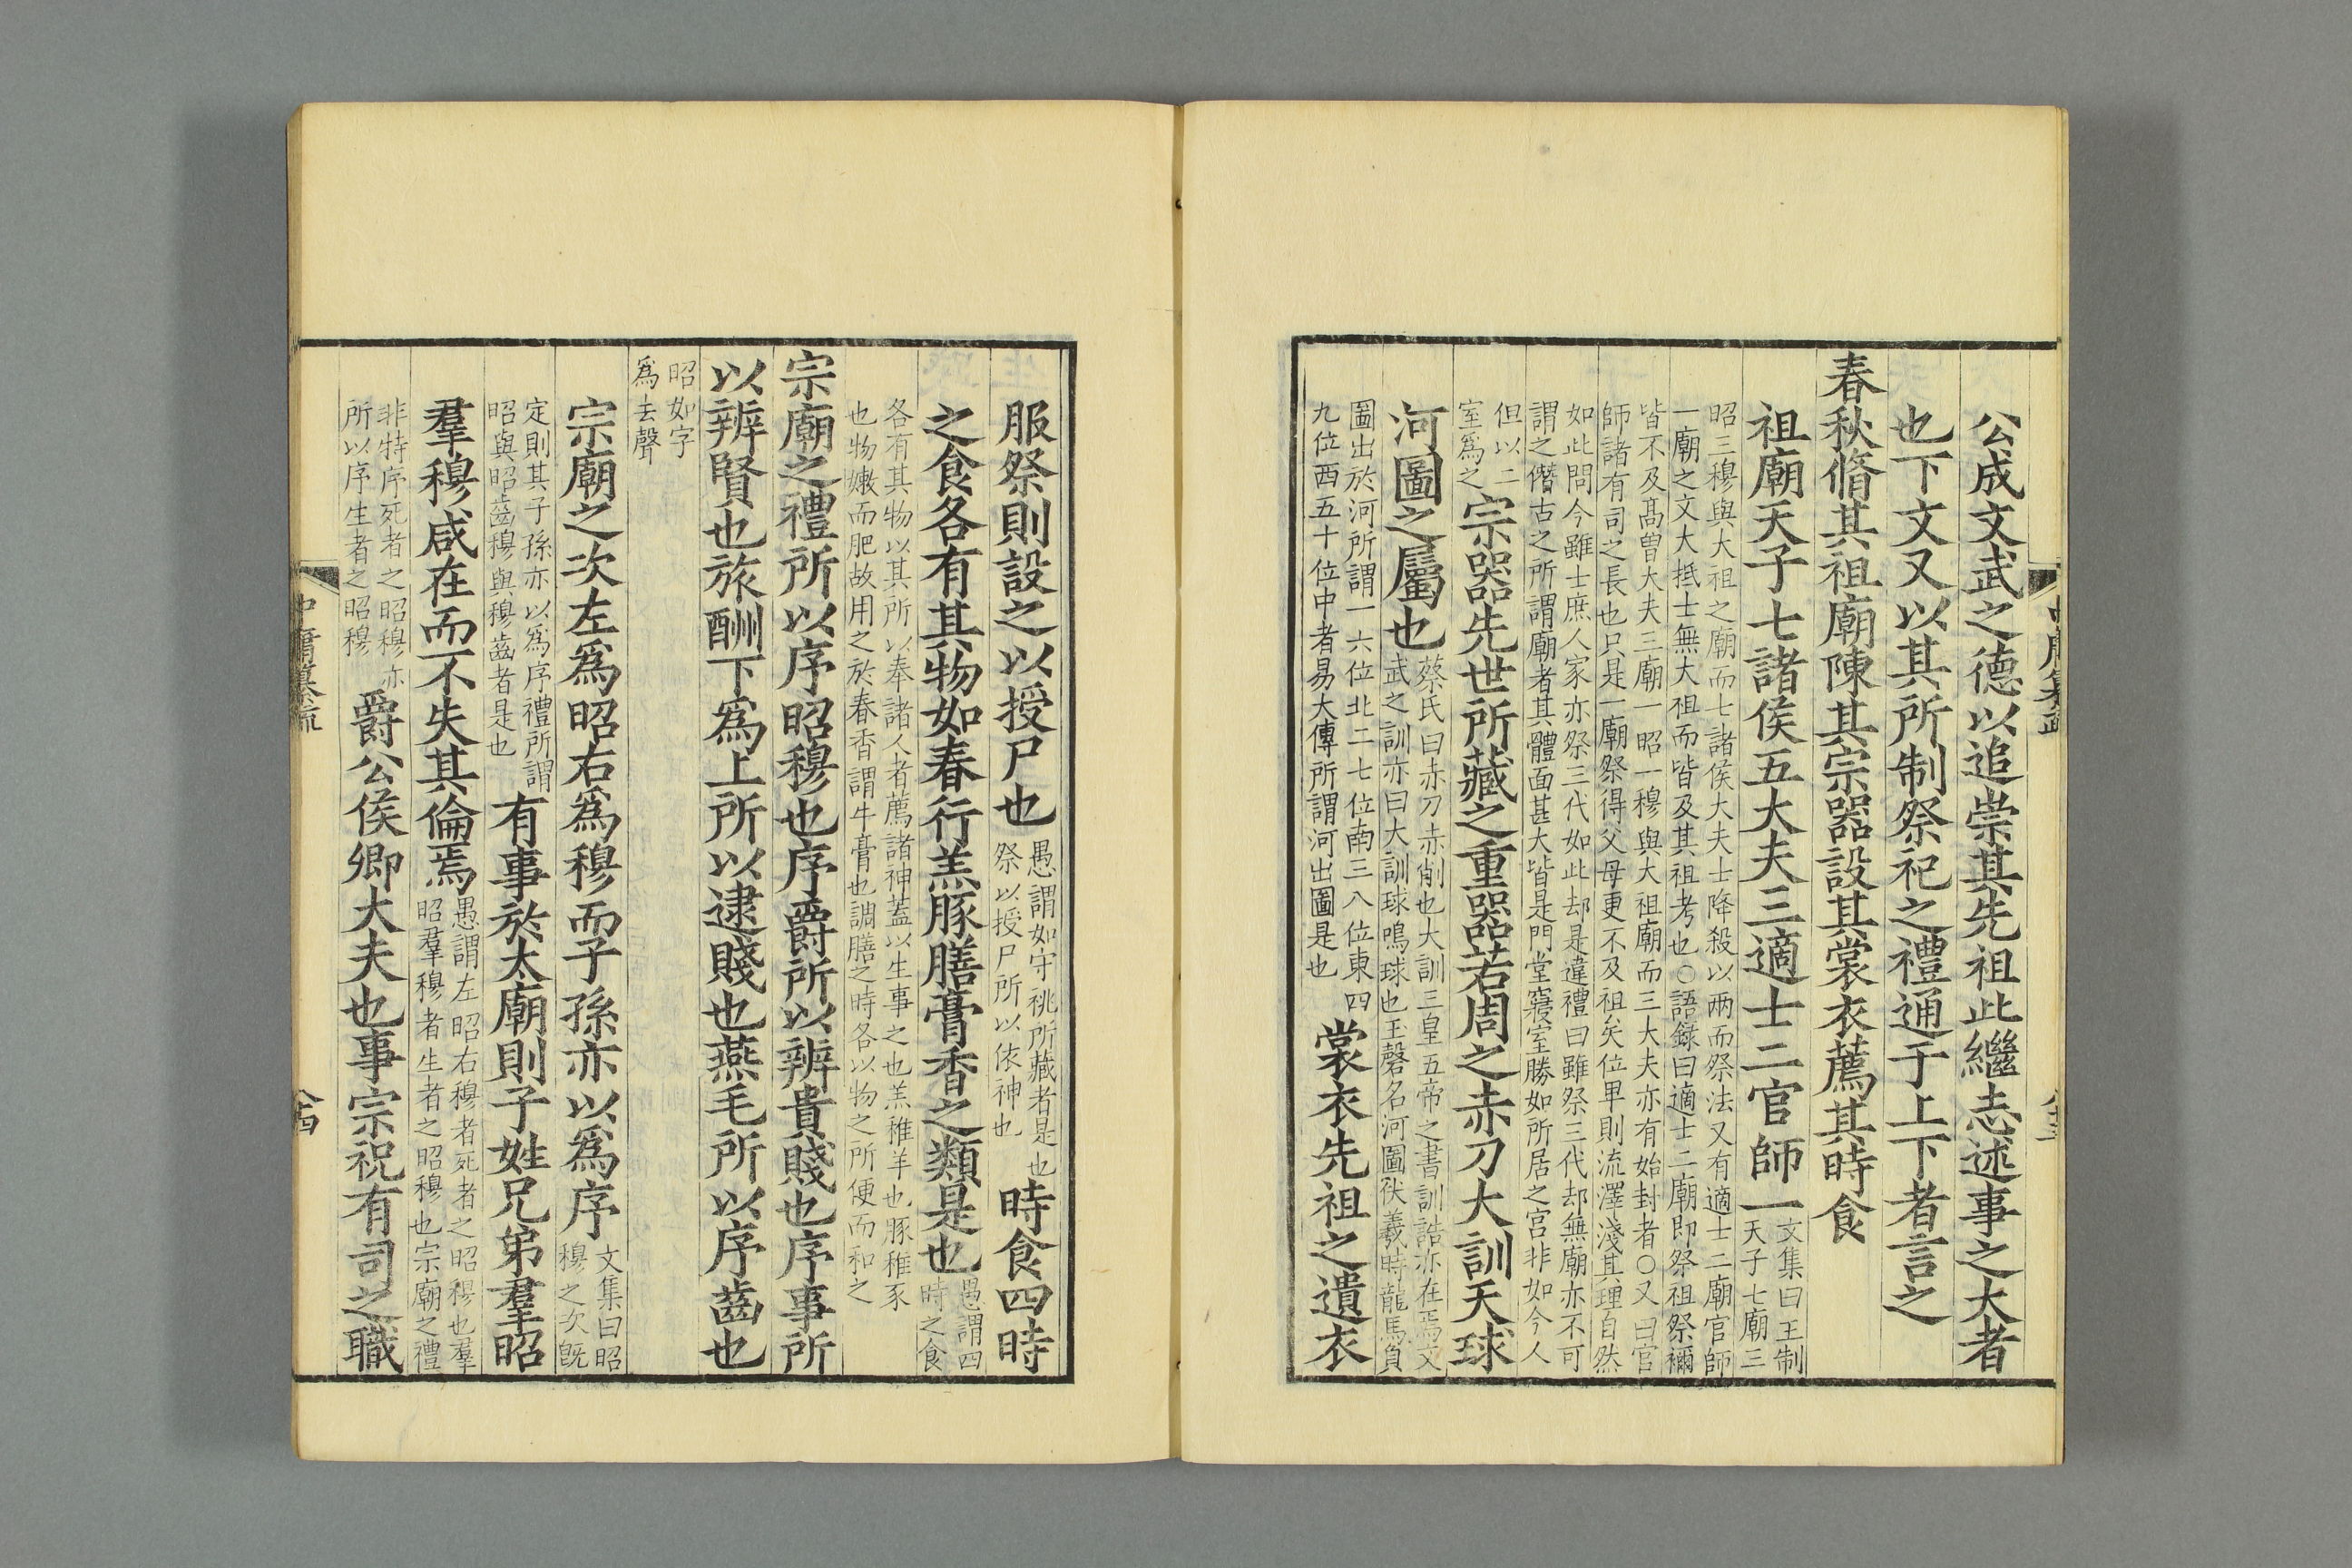 公成文武之德以追崇其先祖此繼志述事之大者
也下文又以其所制祭祀之禮通于上下者言之
春秋脩其祖廟陳其宗器設其裳衣薦其時食
祖廟天子七諸侯五大夫三適士二官師一
文集曰王制
天子七廟三
昭三穆與大祖之廟而七諸侯大夫士降殺以兩而祭法又有適士二廟官師
一廟之文大抵士無大祖而皆及其祖考也○語録曰適士二廟即祭祖祭禰
皆不及髙曽大夫三廟一昭一穆與大祖廟而三大夫亦有始封者○又曰官
師諸有司之長也只是一廟祭得父母更不及祖矣位卑則流澤淺其理自然
如此問今雖士庶人家亦祭三代如此却是違禮曰雖祭三代却無廟亦不可
謂之僭古之所謂廟者其體面甚大皆是門堂寢室勝如所居之宫非如今人
但以二
室爲之
宗器先世所藏之重器若周之赤刀大訓天球
河圖之屬也
蔡氏曰赤刀赤削也大訓三皇五帝之書訓誥亦在焉文
武之訓亦曰大訓球鳴球也玉磬名河圖伏羲時龍馬負
圖出於河所謂一六位北二七位南三八位東四
九位西五十位中者易大傳所謂河出圖是也
裳衣先祖之遺衣
服祭則設之以授尸也
愚謂如守祧所藏者是也
祭以授尸所以依神也
時食四時
之食各有其物如春行羔豚膳膏香之類是也
愚謂四
時之食
各有其物以其所以奉諸人者薦諸神蓋以生事之也羔稚羊也豚稚豕
也物嫩而肥故用之於春香謂牛膏也調膳之時各以物之所便而和之
宗廟之禮所以序昭穆也序爵所以辨貴賤也序事所
以辨賢也旅酬下爲上所以逮賤也燕毛所以序齒也
昭如字
爲去聲
宗廟之次左爲昭右爲穆而子孫亦以爲序
文集曰昭
穆之次既
定則其子孫亦以爲序禮所謂
昭與昭齒穆與穆齒者是也
有事於太廟則子姓兄弟羣昭
羣穆咸在而不失其倫焉
愚謂左昭右穆者死者之昭穆也羣
昭羣穆者生者之昭穆也宗廟之禮
非特序死者之昭穆亦
所以序生者之昭穆
爵公侯卿大夫也事宗祝有司之職